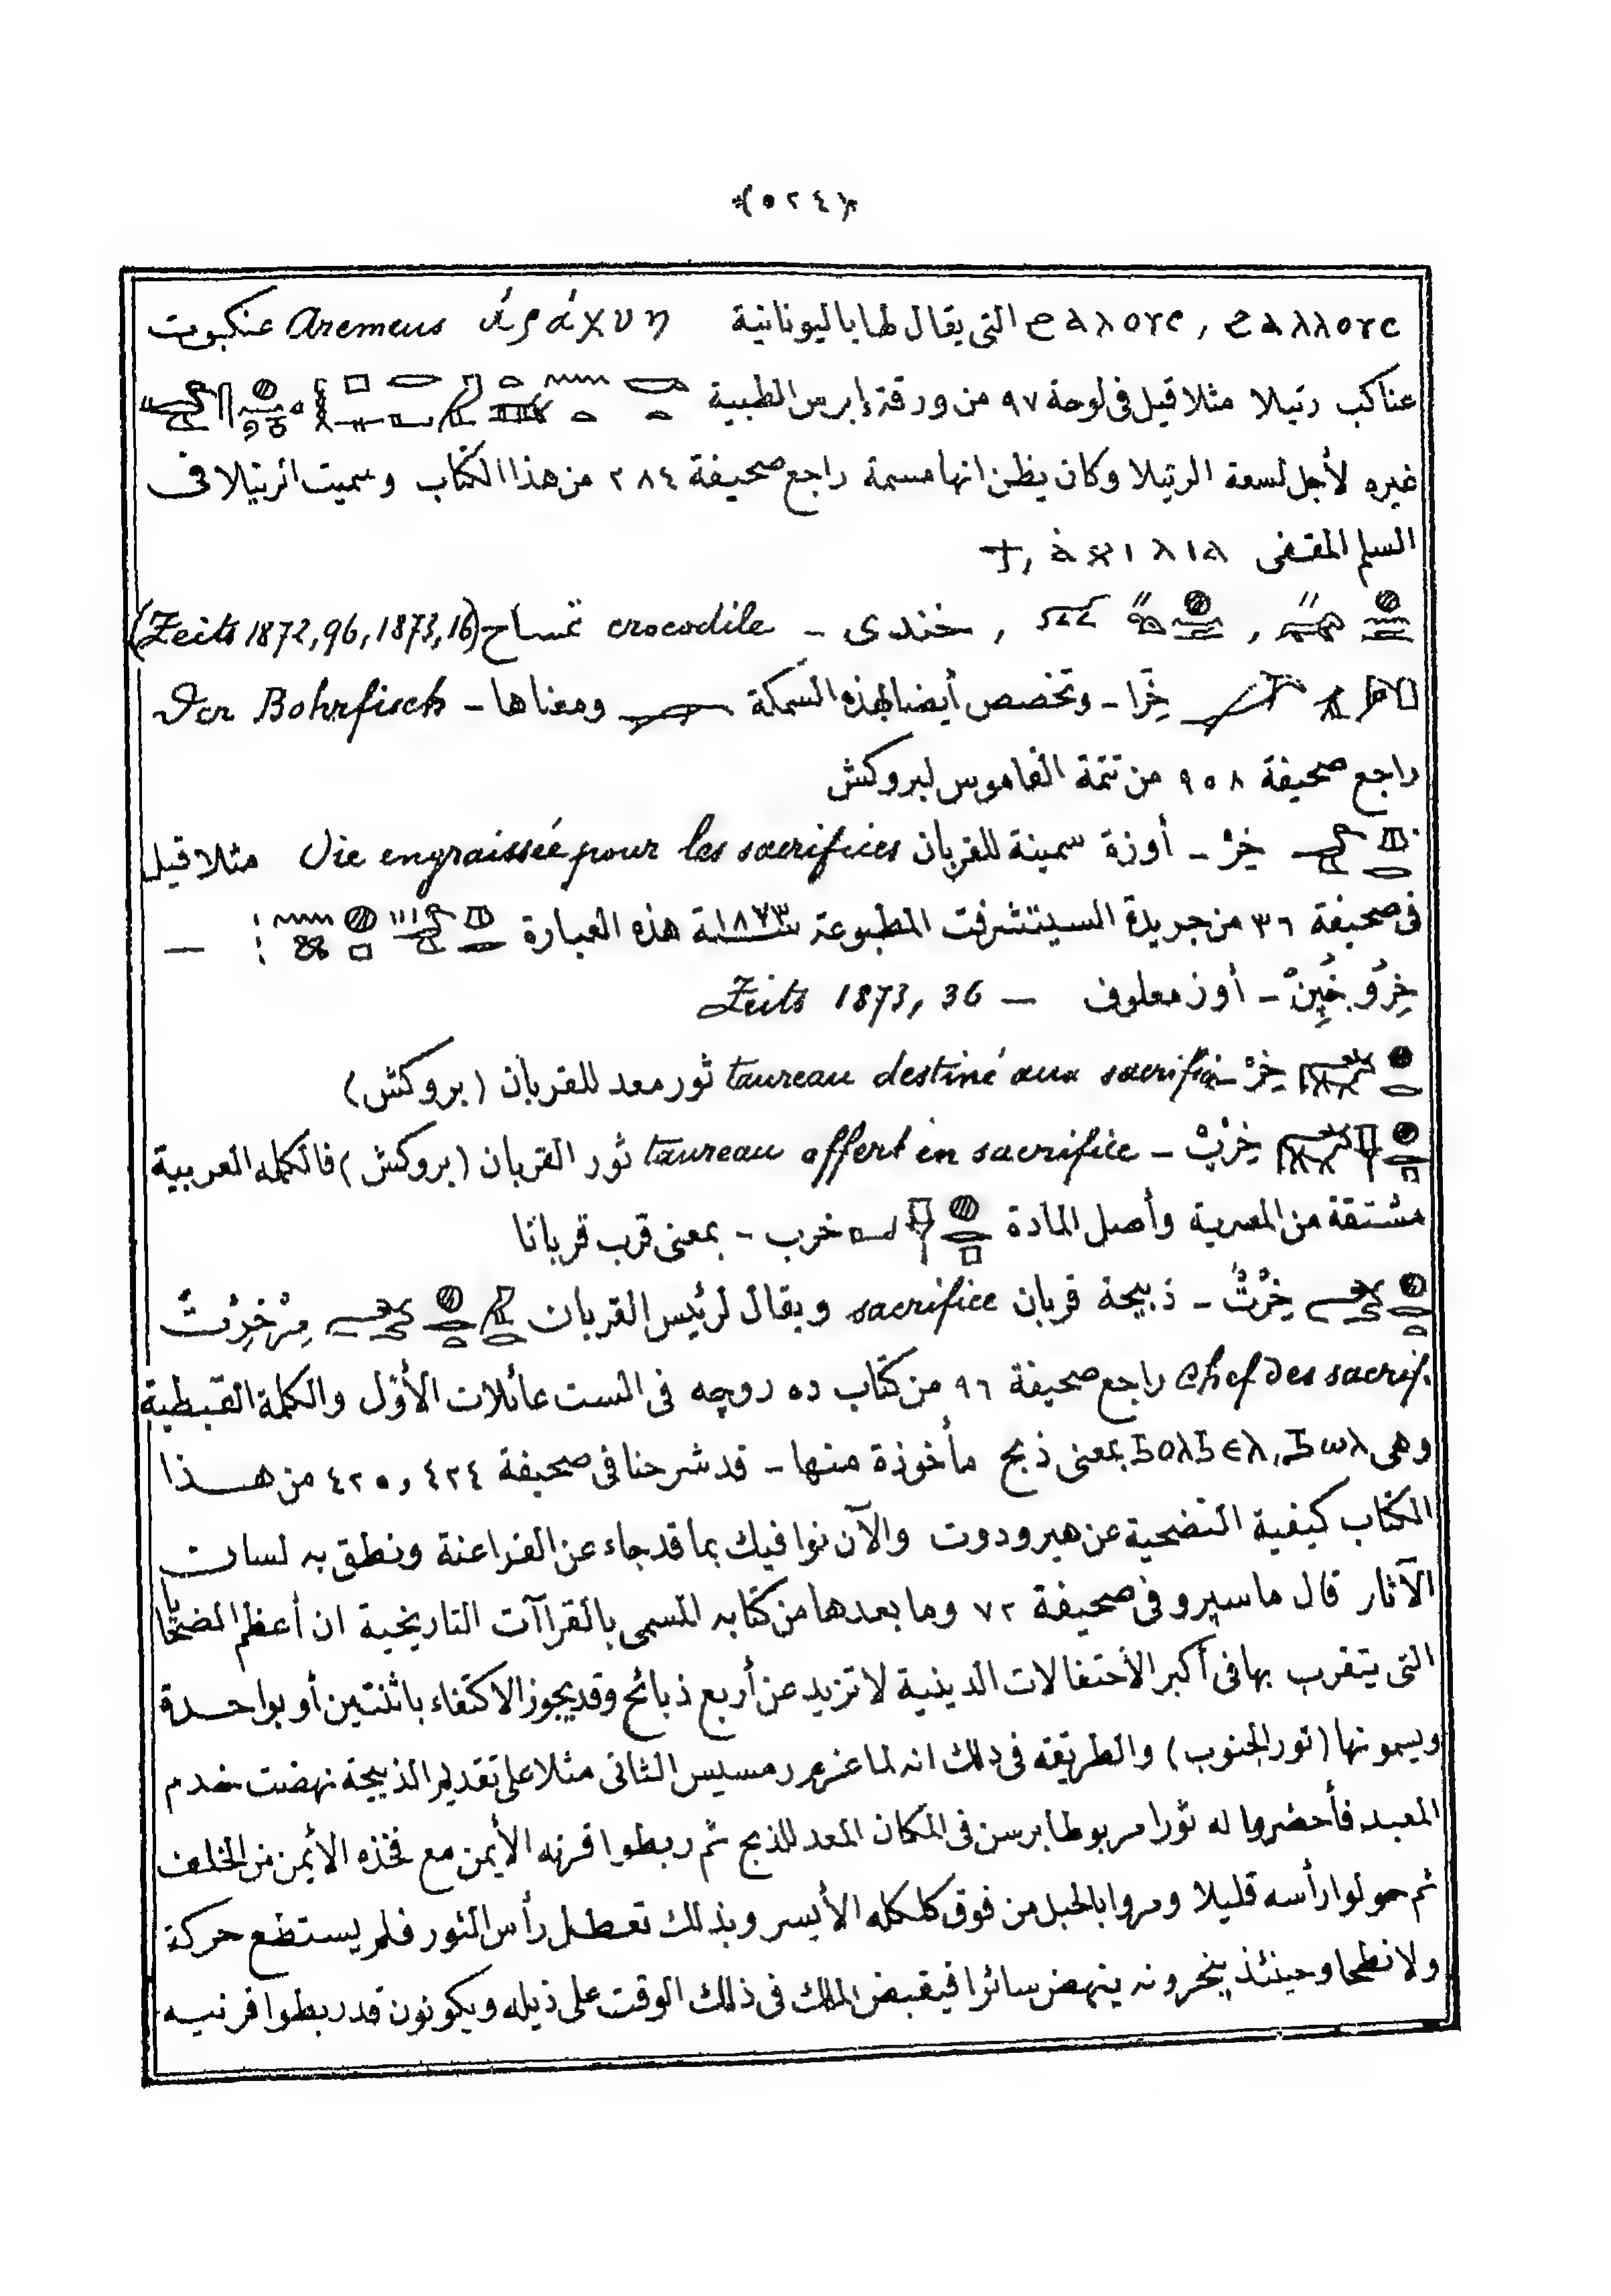 ﴿٥٢٤﴾
ϩⲁⲗⲗⲟⲩⲥ , ϩⲁⲗⲟⲩⲥ التى يقال لها باليونانية ἀράχνη Aremeus عنكبوت
عناكب رتيلا مثلا قيل فى لوحة ٩٧ من ورقة إبرس الطبية
غيره لأجل لسعة الرتيلا وكان يظن انها مسمة راجع صحيفة ٢٨٤ من هذا الكتاب وسميت الرتيلا فى
السلم المقفى
, , خندى - crocodile تمساح (Zeits 1872, 96, 1873, 16)
خِرَا - وتخصص أيضا بهذه السمكة ومعناها - Der Bohrfisch
راجع صحيفة ٩٥٨ من تتمة القاموس لبروكش
خِرْ - أوزة سمينة للقربان Oie engraissée pour les sacrifices مثلا قيل
فى صحيفة ٣٦ من جريدة السيتتشرفت المطبوعة سنة ١٨٧٣ هذه العبارة —
خِرُو خُپِنْ - أوز معلوف — Zeits 1873, 36
خِرْ - taureau destiné aux sacrifi ثور معد للقربان (بروكش)
خِرْپْ - taureau offert en sacrifice ثور القربان (بروكش) فالكلمه العربية
مشتقة من المصرية وأصل المادة خرب - بمعنى قرب قربانا
خِرْتْ - ذبيحة قربان sacrifice ويقال لرئيس القربان مِرْخِرِتْ
Chef des sacrif. راجع صحيفة ٩٦ من كتاب ده روچه فى الست عائلات الأوّل والكلمة القبطية
وهى ϧⲱⲗ, ϧⲟⲗϧⲉⲗ بمعنى ذبح مأخوذة منها - قد شرحنا فى صحيفة ٤٢٤ و ٤٢٥ من هـذا
الكتاب كيفية التضحية عن هيرودوت والآن نوافيك بما قد جاء عن الفراعنة ونطق به لسان
الآثار قال ماسپرو فى صحيفة ٧٢ وما بعدها من كتابه المسمى بالقراآت التاريخية ان أعظم الضحايا
التى يتقرب بها فى أكبر الأحتفالات الدينية لا تزيد عن أربع ذبائح وقد يجوز الاكتفاء باثنتين أو بواحدة
ويسمونها (ثور الجنوب) والطريقه فى ذلك انه لما عزم رمسيس الثانى مثلا على تقديم الذبيحة نهضت خدم
المعبد فأحضروا له ثورا مربوطا برسن فى المكان المعد للذبح ثم ربطوا قرنه الأيمن مع فخذه الأيمن من الخلف
ثم حولوا رأسه قليلا ومروا بالحبل من فوق كلكله الأيسر وبذلك تعطل رأس الثور فلم يستطع حركة
ولا نطحا وحينئذ ينحرونه ينهض سائرا فيقبض الملك فى ذلك الوقت على ذيله ويكونون قد ربطوا قرنيه